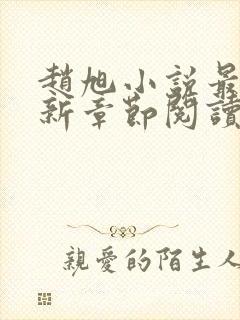 趙旭小說最
新章節閱讀
親愛的陌生人